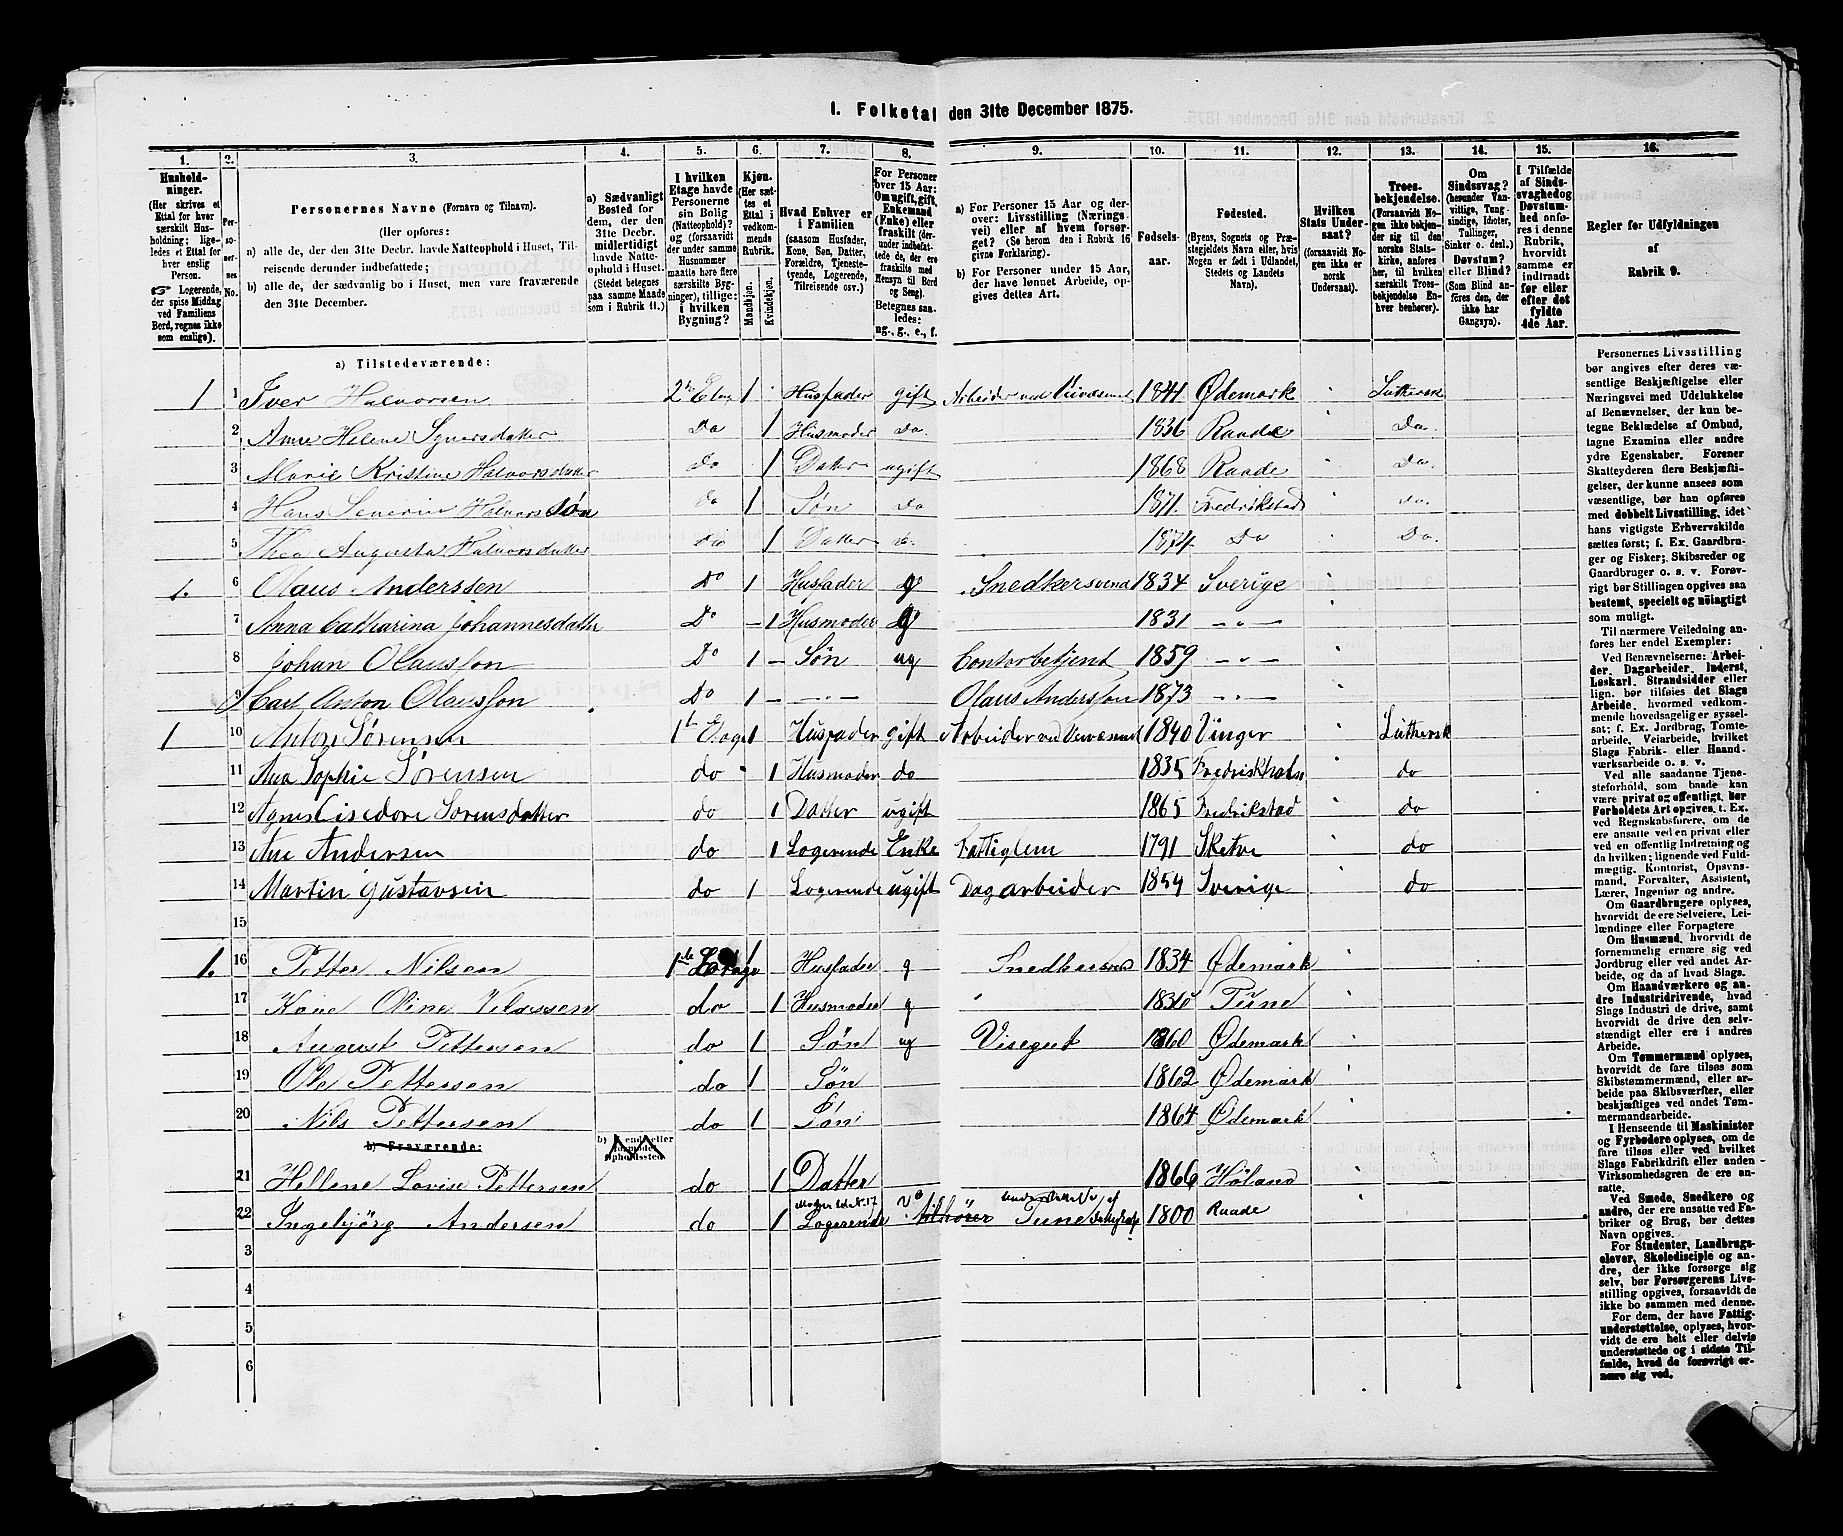 1. Folketal den 31te December 1875.
1. 2. 3. 4. 5. 6. 7. 8. 9. 10. 11. 12. 13. 14. 15. 16.
Hushold-
ninger.
(Her skrives et
Ettal for hver
særskilt Hus-
holdning; lige-
ledes et Ettal for
hver enslig
Person.
☞ Logerende,
der spise Middag
ved Familiens
Bord, regnes ikke
som enslige).
Per-
so-
ner-
nes
No.
Personernes Navne (Fornavn og Tilnavn).
(Her opføres:
a) alle de, der den 31te Decbr. havde Natteophold i Huset, Til-
reisende derunder indbefattede;
b) alle de, der sædvanlig bo i Huset, men vare fraværende
den 31te December.
a) Sædvanligt
Bosted for
dem, der den
31te Decbr.
midlertidigt
havde Natte-
ophold i Huset.
(Stedet betegnes
paa samme Maade
som i Rubrik 11.)
I hvilken
Etage havde
Personerne
sin Bolig
(Natteophold)?
og (forsaavidt
der under samme
Husnummer
maatte høre flere
særskilte Byg-
ninger), tillige:
i hvilken
Bygning?
Kjøn.
(Her sæt-
tes et
Ettal i
vedkom-
mende
Rubrik.
Mandkjøn.
Kvindekjøn.
Hvad Enhver er
i Familien
(saasom Husfader,
Kone, Søn, Datter,
Forældre, Tjeneste-
tyende, Logerende,
Tilreisende osv.)
For Personer
over 15 Aar:
Om ugift, gift,
Enkemand
(Enke) eller
fraskilt (der-
under indbefat-
tede de, der ere
fraskilte med
Hensyn til Bord
og Seng).
Betegnes saa-
ledes:
ug., g., e., f.
a) For Personer 15 Aar og der-
over: Livsstilling (Nærings-
vei) eller af hvem forsør-
get? (Se herom den i Rubrik 16
givne Forklaring).
b) For Personer under 15 Aar,
der have lønnet Arbeide, op-
gives dettes Art.
Fødsels-
aar.
Fødested.
(Byens, Sognets og Præ-
stegjeldets Navn eller, hvis
Nogen er født i Udlandet,
Stedets og Landets
Navn).
Hvilken
Stats Under-
saat?
(forsaavidt No-
gen ikke er
norsk
Undersaat).
Troes-
bekjendelse.
(Forsaavidt No-
gen ikke bekjen-
der sig til den
norske Stats-
kirke, anføres
her, til hvilken
særskilt Troes-
bekjendelse En-
hver henhører).
Om
Sindssvag?
(herunder Van-
vittige, Tung-
sindige, Idioter,
Tullinger,
Sinker o. desl.)
Døvstum?
eller Blind?
(Som Blind an-
føres den, der
ikke har
Gangsyn).
I Tilfælde
af Sinds-
svaghed og
Døvstum-
hed anfø-
res i denne
Rubrik,
hvorvidt
samme er
indtraadt
før eller
efter det
fyldte
4de Aar.
Regler for Udfyldningen
af
Rubrik 9.
a) Tilstedeværende:
1 1 Iver Halvorsen 2n Etag 1 Husfader gift Arbeider ved 1841 Ødemark Luthersk
2 Anne Helene Do 1 Husmoder Do. 1836 Raade Do.
3 Marie Kristine Halvorsdatter Do 1 Datter ugift 1868 Raade Do.
4 Hans Severin Halvorssøn Do 1 Søn Do 1871. Fredrikstad Do.
5 Thea Augusta Halvorsdatter Do 1 Datter Do. 1874 Do Do.
1. 6 Olaus Anderssen Do 1 Husfader g Snedkersvend 1834 Sverige
7 Anna Catharina Johannesdatter Do – 1 Husmoder g 1831 – „ –
8 Johan Olausson Do 1 – Søn ug Contorbetjent 1859 – „ –
9 Carl Anton Olausson Do 1 – – „ – Olaus Andersson 1873 – „ –
1 10 Anton Sørensen 1te Etage 1 Husfader gift Arbeider ved 1840 Vinger Luthersk
11 Ane Sophie Sørensen do 1 Husmoder do 1835 Fredrikshaln do
12 Agnes Lisedore Sørensdatter do 1 Datter ugift 1865 Fredrikstad do
13 Ane Andersen do 1 Logerende Enke Fattiglem 1791 do
14 Martin Gustavsen do 1 Logerende ugift Dagarbeider 1854 Sverige do
15
1. 16 Petter Nilsen 1te 1 Husfader g Snedkersvend 1834 Ødemark
17 Kone Oline do 1 Husmoder g „ Tune
18 August Pettersen do 1 Søn ug Visegut 1860 Ødemark
19 Ole Pettersen do 1 Søn 1862 Ødemark
20 Nils Pettersen do 1 Søn 1864 Ødemark
b) Fraværende:
21 Hellene Lovise Pettersen do 1 Datter 1866 Høland
22 Ingebjörg Andersen do 1 Logerende tilhører Tune 1800 Raade
3
4
5
6
Personernes Livsstilling
bør angives efter deres væ-
sentlige Beskjæftigelse eller
Næringsvei med Udelukkelse
af Benævnelser, der kun be-
tegne Beklædelse af Ombud,
tagne Examina eller andre
ydre Egenskaber. Forener
Skatteyderen flere Beskjæfti-
gelser, der kunne ansees som
væsentlige, bør han opføres
med dobbelt Livsstilling, idet
hans vigtigste Erhvervskilde
sættes først; f. Ex. Gaardbru-
ger og Fisker; Skibsreder og
Gaardbruger o. s. v. Forøv-
rigt bør Stillingen opgives saa
bestemt, specielt og nöiagtigt
som muligt.
Til nærmere Veiledning an-
føres her endel Exempler:
Ved Benævnelserne: Arbei-
der, Dagarbeider, Inderst,
Løskarl, Strandsidder eller
lign. bør tilføies det Slags
Arbeide, hvormed vedkom-
mende hovedsagelig er syssel-
sat; f. Ex. Jordbrug, Tomte-
arbeide, Veiarbeide, hvilket
Slags Fabrik- eller Haand-
værksarbeide o. s. v.
Ved alle saadanne Tjene-
steforhold, som baade kan
være privat og offentligt, bør
Forholdets Art opgives, t. Ex.
ved Regnskabsførere, om de
ere ansatte ved en privat eller
ved en offentlig Indretning og
da hvilken; lignende ved Fuld-
mægtig, Kontorist, Opsyns-
mand, Forvalter, Assistent,
Lærer, Ingeniør og andre.
Om Gaardbrugere oplyses,
hvorvidt de ere Selveiere, Lei-
lændinge eller Forpagtere
Om Husmænd, hvorvidt de
fornemmelig ernære sig ved
Jordbrug eller ved andet Ar-
beide, og da af hvad Slags.
Om Haandværkere og an-
dre Industridrivende, hvad
Slags Industri de drive, samt
hvorvidt de drive den selv-
stændigt eller ere i andres
Arbeide.
Om Tømmermænd oplyses,
hvorvidt de fare tilsøs som
Skibstømmermænd, eller ar-
beide paa Skibsværfter, eller
beskjæftiges ved andet Tøm-
mermandsarbeide.
I Henseende til Maskinister
og Fyrbødere oplyses, om de
fare tilsøs eller ved hvilket
Slags Fabrikdrift eller anden
Virksomhedsgren de ere an-
satte.
Ved Smede, Snedkere og
andre, der ere ansatte ved Fa-
briker og Brug, bør dettes
Navn opgives.
For Studenter, Landbrugs-
elever, Skoledisciple og an-
dre, der ikke forsørge sig
selv, bør Forsørgerens Livs-
stilling opgives, forsaavidt de
ikke bo sammen med denne.
For dem, der have Fattig-
understøttelse, oplyses, hvor-
vidt de ere helt eller delvis
understøttede og i sidste Til-
fælde, hvad de forøvrigt er-
nære sig ved.